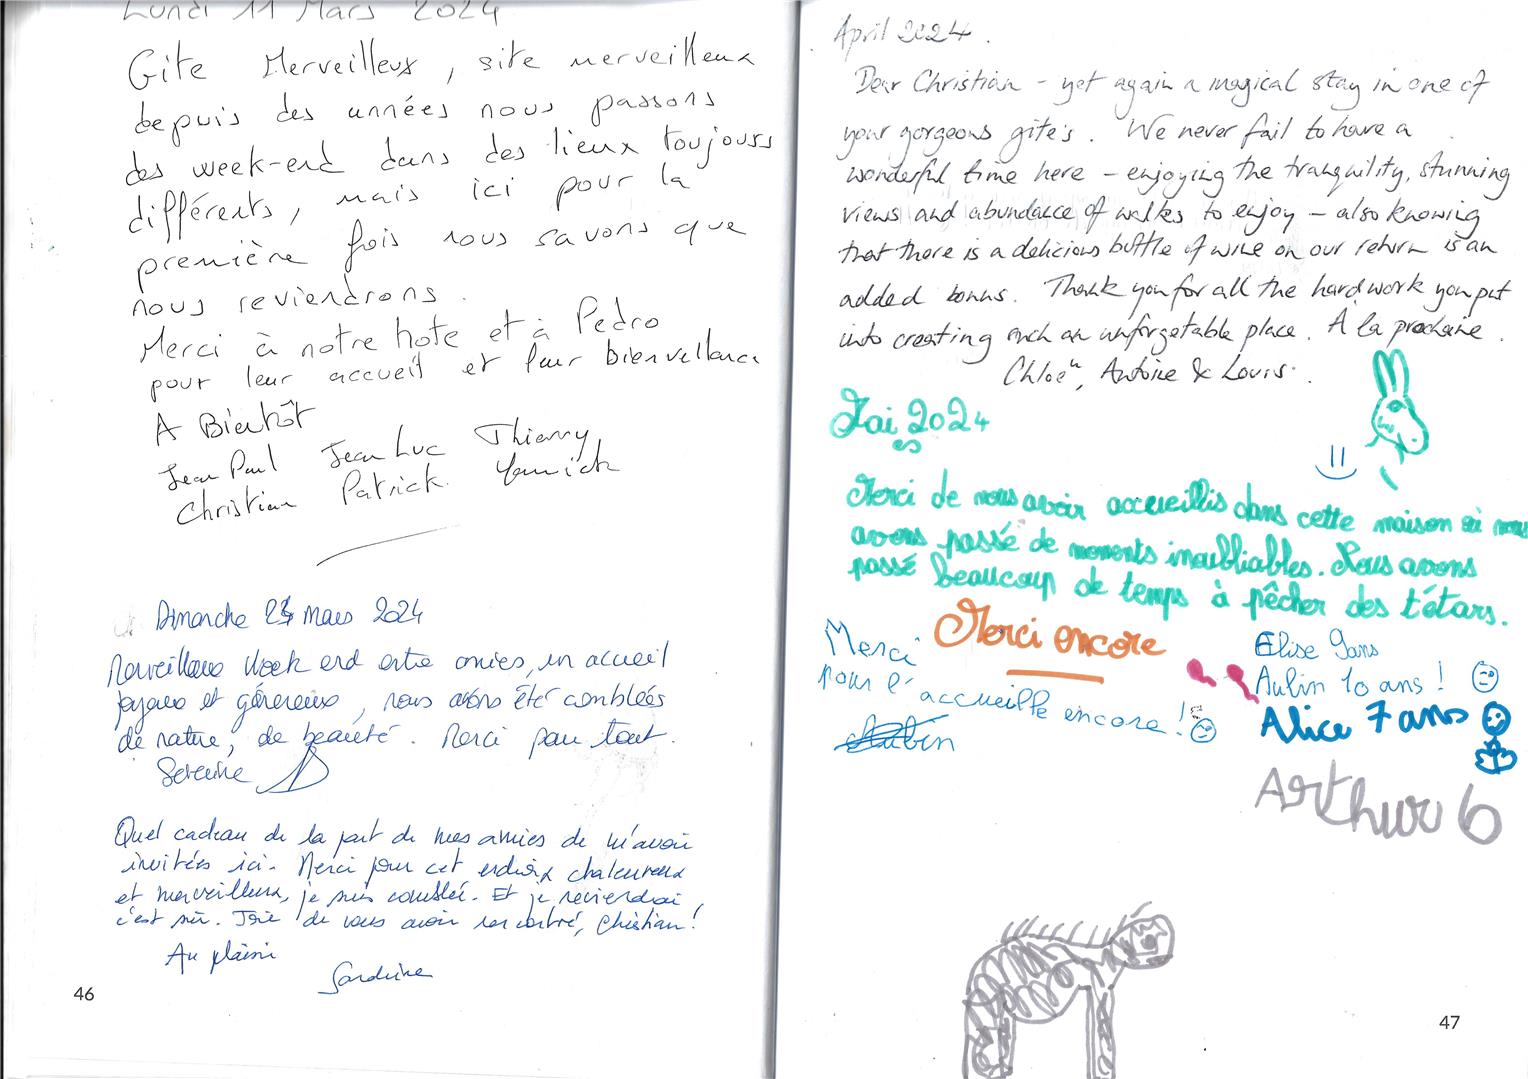 Lundi 11 Mars 2024
Gite Merveilleux, site merveilleux
depuis des années nous passons
des week-end dans des lieux toujours
différents, mais ici pour la
première fois nous savons que
nous reviendrons.
Merci à notre hote et à Pedro
pour leur accueil et leur bienveillance
A Bientôt
Jean Paul Jean Luc Thierry
Christian Patrick Yannick
Dimanche 24 mars 2024
Merveilleux Week end entre amies, un accueil
joyeux et généreux, nous avons été comblées
de nature, de beauté. Merci pour tout.
Quel cadeau de la part de mes amies de m'avoir
invitées ici. Merci pour cet endroit chaleureux
et merveilleux, je suis comblée. Et je reviendrai
c'est sûr. Joie de vous avoir rencontré, Christian!
Au plaisir
Sandrine
46
April 2024.
Dear Christian - yet again a magical stay in one of
your gorgeous gîte's. We never fail to have a
wonderful time here - enjoying the tranquility, stunning
views and abundance of walks to enjoy - also knowing
that there is a delicious bottle of wine on our return is an
added bonus. Thank you for all the hard work you put
into creating such an unforgetable place. À la prochaine.
Chloë, Antoine & Louis.
Mai 2024
Merci de nous avoir accueillis dans cette maison où nous
avons passé de moments inoubliables. Nous avons
passé beaucoup de temps à pêcher des têtars.
Merci encore
Merci
pour l'accueille encore!
Aubin
Elise 9ans
Aubin 10 ans!
Alice 7 ans
Arthur 6
47